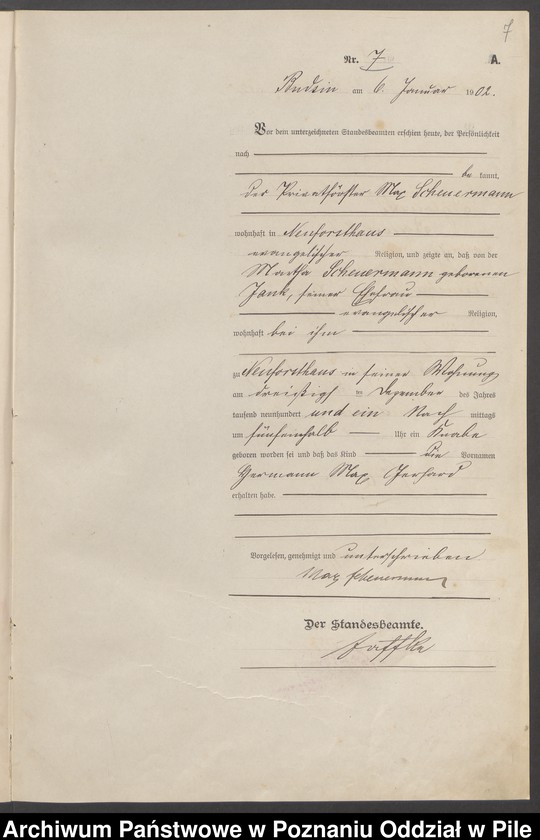 7
Nr. 7 A.
Budsin am 6. Januar 1902.
Vor dem unterzeichneten Standesbeamten erschien heute, der Persönlichkeit
nach
be kannt,
der Privatförster Max Scheuermann
wohnhaft in Neuforsthaus
evangelischer Religion, und zeigte an, daß von der
Martha Scheuermann geborenen
Jank, seiner Ehefrau
evangelischer Religion,
wohnhaft bei ihm
zu Neuforsthaus in seiner Wohnung
am dreißigsten Dezember des Jahres
tausend neunhundert und ein Nach mittags
um fünfeinhalb Uhr ein Knabe
geboren worden sei und daß das Kind die Vornamen
Hermann Max Gerhard
erhalten habe.
Vorgelesen, genehmigt und unterschrieben
Max Scheuermann
Der Standesbeamte.
Archiwum Państwowe w Poznaniu Oddział w Pile